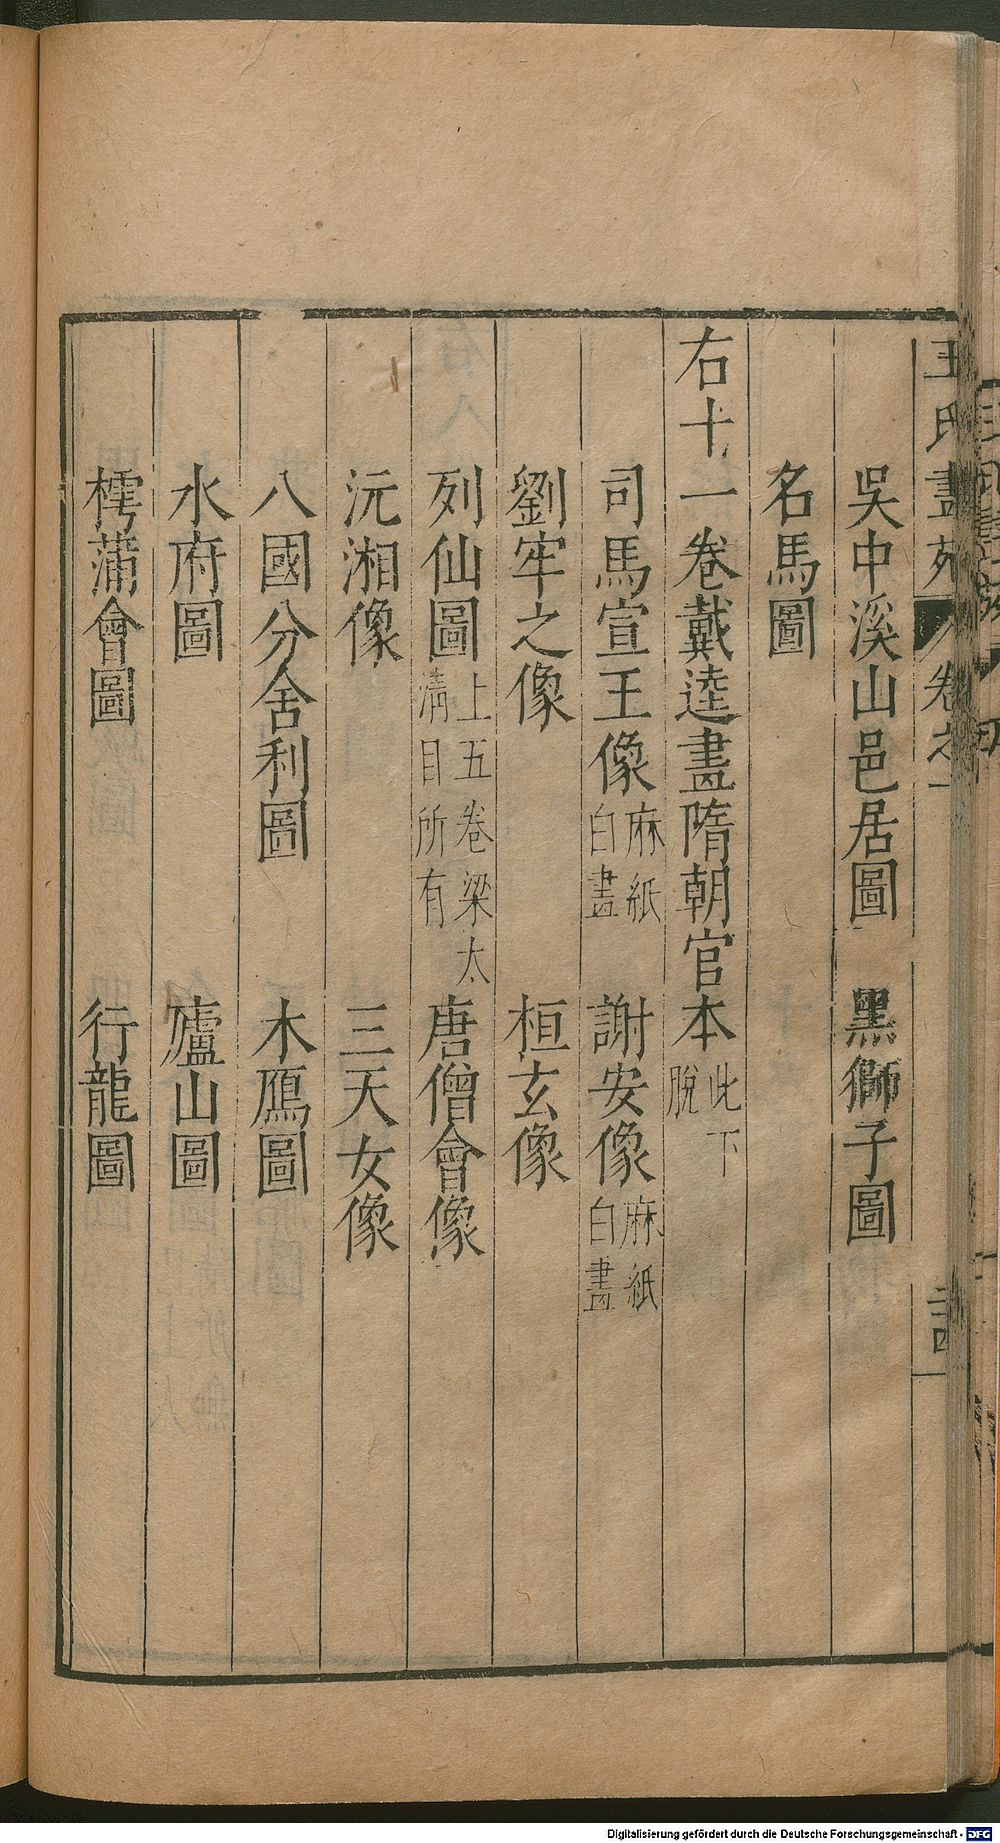 王氏畫苑 卷之一 二四
吳中溪山邑居圖 黑獅子圖
名馬圖
右十一卷戴逵畫隋朝官本此下脫
司馬宣王像麻紙白畫 謝安像麻紙白畫
劉牢之像 桓玄像
列仙圖上五卷梁太清目所有 唐僧會像
沅湘像 三天女像
八國分舍利圖 木鴈圖
水府圖 廬山圖
樗蒲會圖 行龍圖
Digitalisierung gefördert durch die Deutsche Forschungsgemeinschaft - DFG